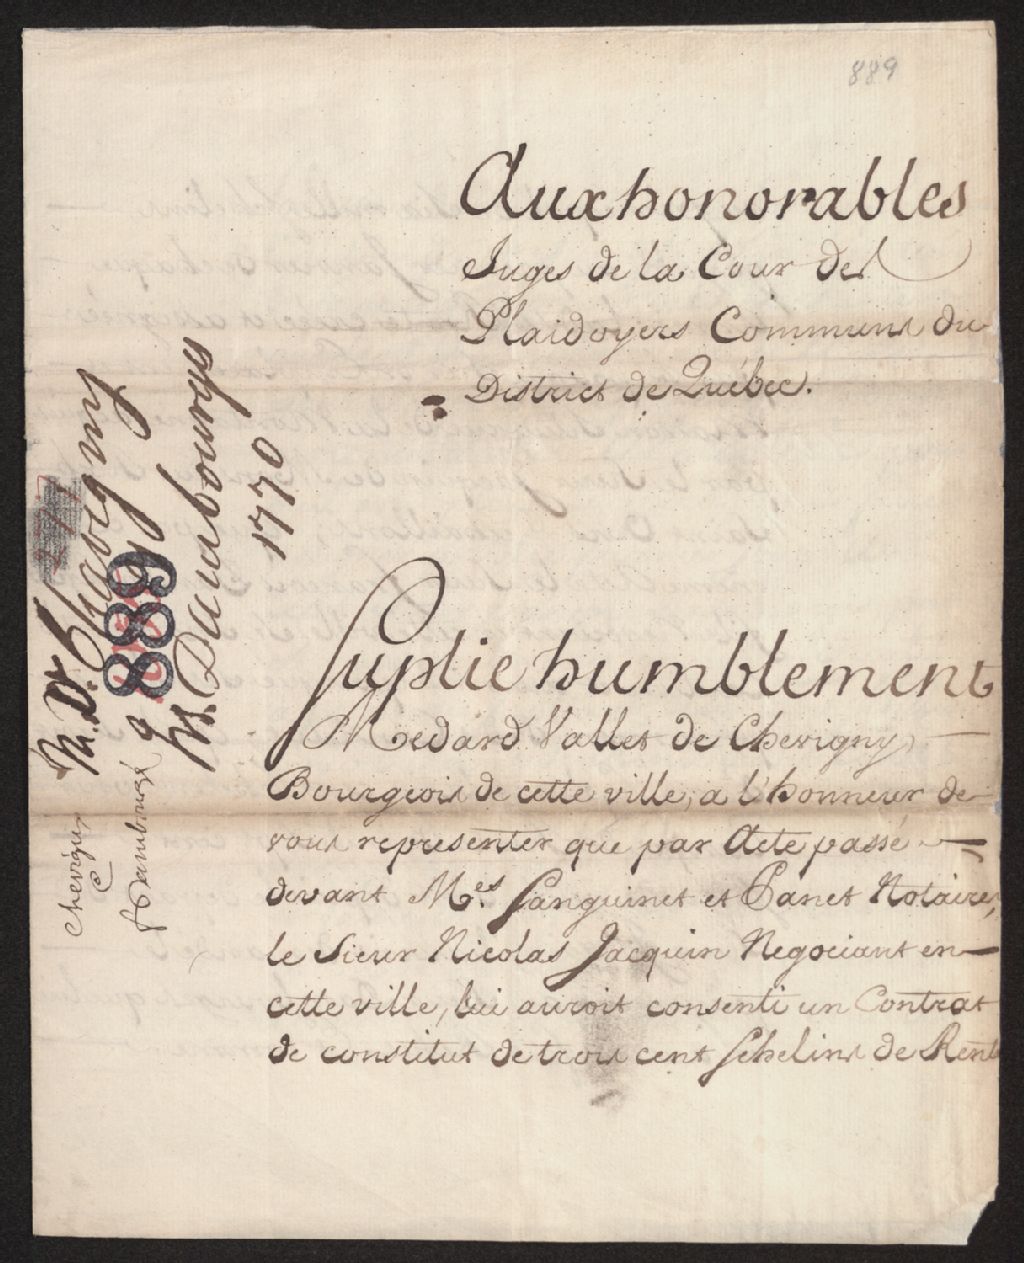 889
Aux honorables
Juges de la Cour des
Plaidoyers Communs du
District de Québec.
Suplie humblement
Medard Vallet de Chevigny
Bourgeois de cette ville, a l'honneur de
vous representer que par Acte passé
devant Mes. Sanguinet et Panet Notaires,
le Sieur Nicolas Jacquin Negociant en
cette ville, lui auroit consenti un Contrat
de constitut de trois cent Schelins de Rente
M. Vt. Chavigny
889
Dambourgs
1770
Chevigny
C
Dambourgé